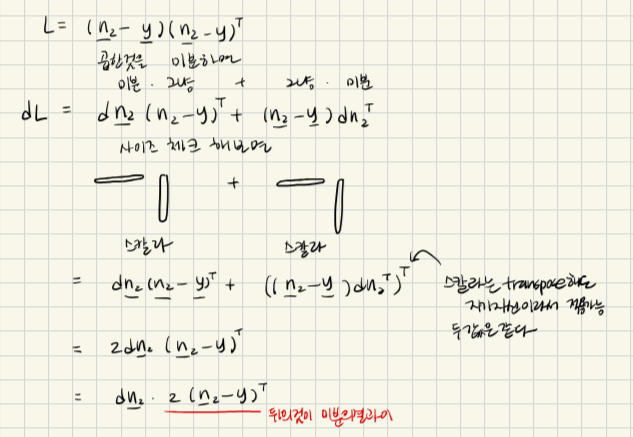 L = (n₂ - y)(n₂-y)ᵀ
곱한것을 미분하면
미분 · 그냥 + 그냥 · 미분
dL = dn₂ (n₂-y)ᵀ + (n₂-y) dn₂ᵀ
사이즈 체크 해보면
+
스칼라 스칼라
= dn₂ (n₂ - y)ᵀ + ((n₂-y) dn₂ᵀ)ᵀ
스칼라는 transpose해도
자기자신이라서 적용가능
두값은 같다
= 2dn₂ (n₂-y)ᵀ
= dn₂ · 2 (n₂-y)ᵀ
뒤의것이 미분의결과이